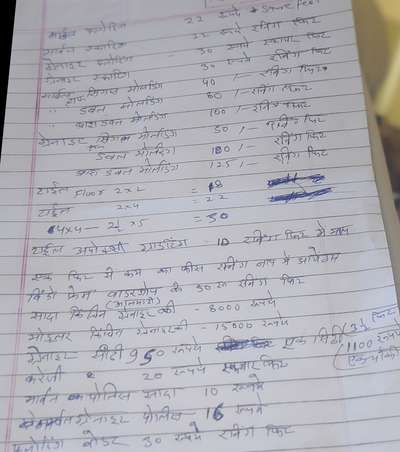 मार्बल फ्लोरिंग 22 रूपये Square Feet
मार्बल स्कर्टिंग 22 रूपये रनिंग फिट
ग्रेनाइट फ्लोरिंग = 30 रूपये स्क्वायर फिट
ग्रेनाइट स्कर्टिंग 30 रूपये रनिंग फिट
मार्बल हाफ सिंगल मोल्डिंग 40 /- रनिंग फिट
,, डबल मोल्डिंग 60 /- रनिंग फिट
,, डबल मोल्डिंग 100 /- रनिंग फिट
ग्रेनाइट सिंगल मोल्डिंग 50 /- रनिंग फिट
डबल मोल्डिंग 100 /- रनिंग फिट
डबल मोल्डिंग 125 /- रनिंग फिट
टाईल Floor 2x2 = 18
टाईल 2x4 = 22
4x4 - 2½ x5 = 30
टाईल अपोक्सी ग्राउटिंग - 10 रनिंग फिट में
एक फिट से कम का पीस रनिंग नाप में आयेगा
विंडो फ्रेम के 50 रू रनिंग फिट
सादा किचिन ग्रेनाइट की - 8000 रूपये
मोडुलर किचिन ग्रेनाइट की - 15000 रूपये
ग्रेनाइट सीढी 950 रूपये एक सिढी (3½ फिट
1100 रूपये
20 रूपये स्क्वायर फिट
मार्बल पोलिस सादा 10 रूपये
ग्रेनाइट पोलिस - 16 रूपये
बोर्डर 30 रूपये रनिंग फिट